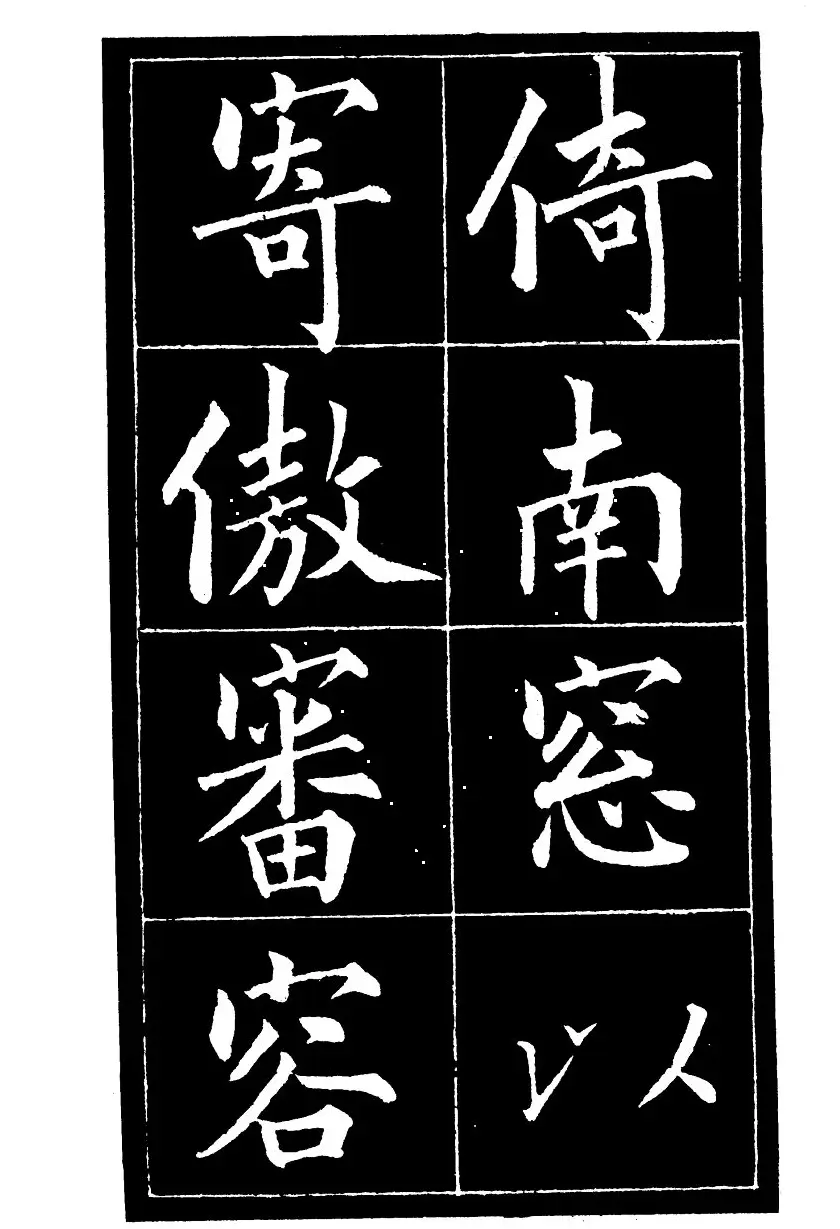 倚南窓以
寄傲審容